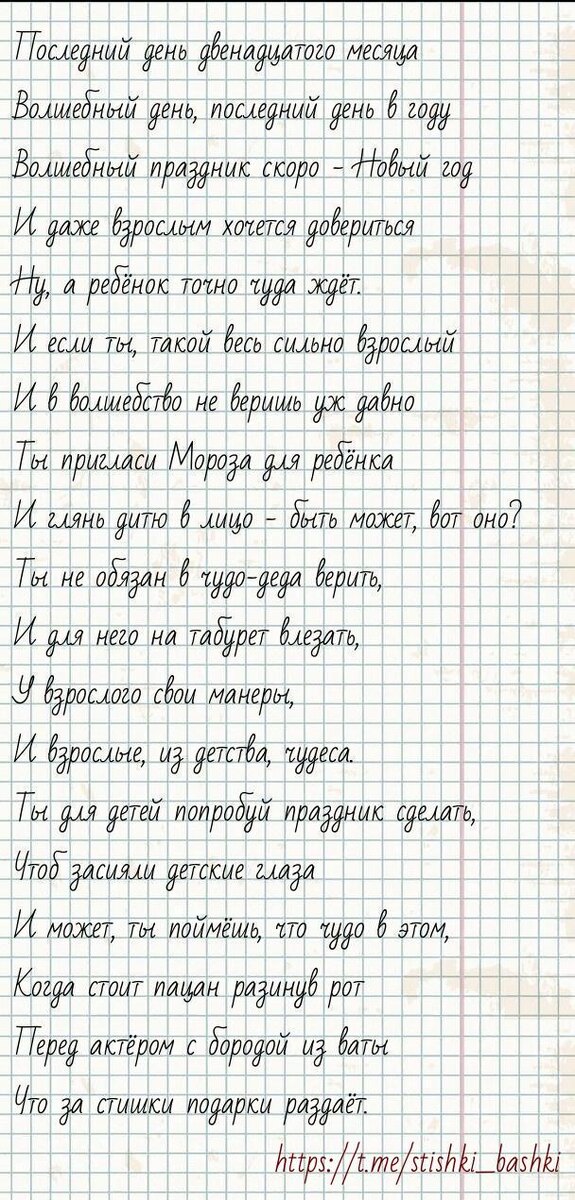 Последний день двенадцатого месяца
Волшебный день, последний день в году
Волшебный праздник скоро - Новый год
И даже взрослым хочется довериться
Ну, а ребёнок точно чуда ждёт.
И если ты, такой весь сильно взрослый
И в волшебство не веришь уж давно
Ты пригласи Мороза для ребёнка
И глянь дитю в лицо - быть может, вот оно?
Ты не обязан в чудо-деда верить,
И для него на табурет влезать,
У взрослого свои манеры,
И взрослые, из детства, чудеса.
Ты для детей попробуй праздник сделать,
Чтоб засияли детские глаза
И может, ты поймёшь, что чудо в этом,
Когда стоит пацан разинув рот
Перед актёром с бородой из ваты
Что за стишки подарки раздаёт.
https://t.me/stishki_bashki